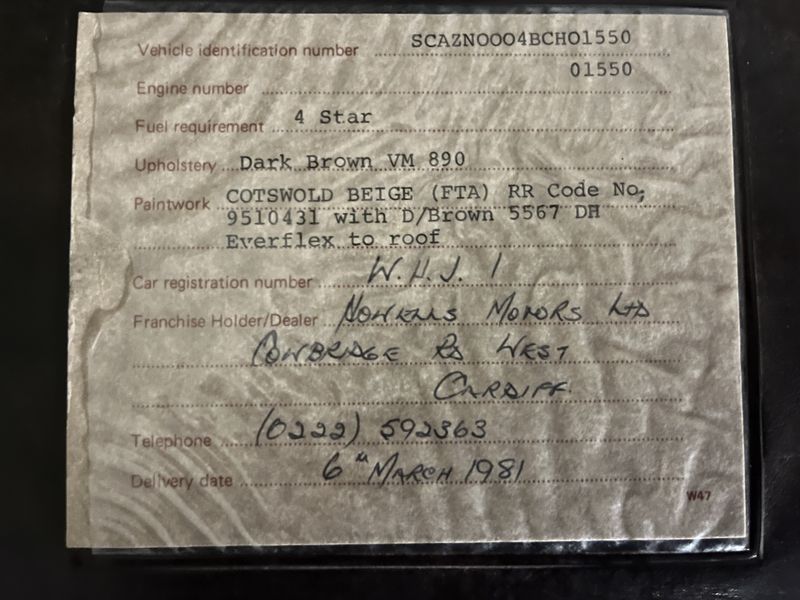 Vehicle identification number SCAZN0004BCH01550
Engine number 01550
Fuel requirement 4 Star
Upholstery Dark Brown VM 890
Paintwork COTSWOLD BEIGE (FTA) RR Code No;
9510431 with D/Brown 5567 DH
Everflex to roof
Car registration number W.H.J. 1
Franchise Holder/Dealer Howells Motors Ltd
Cowbridge Rd West
Cardiff
Telephone (0222) 592363
Delivery date 6th March 1981
W47